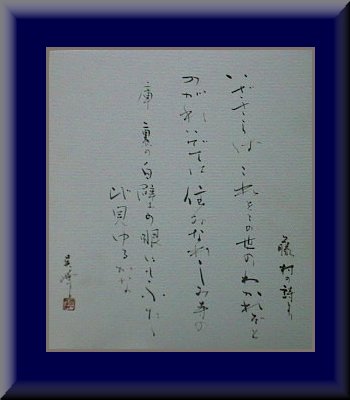 藤村の詩より
いざさらばこれをこの世のわかれぞと
のがれいでては住みなれしみ寺の
庫裏の白壁の眼にもふたた
び見ゆるかな